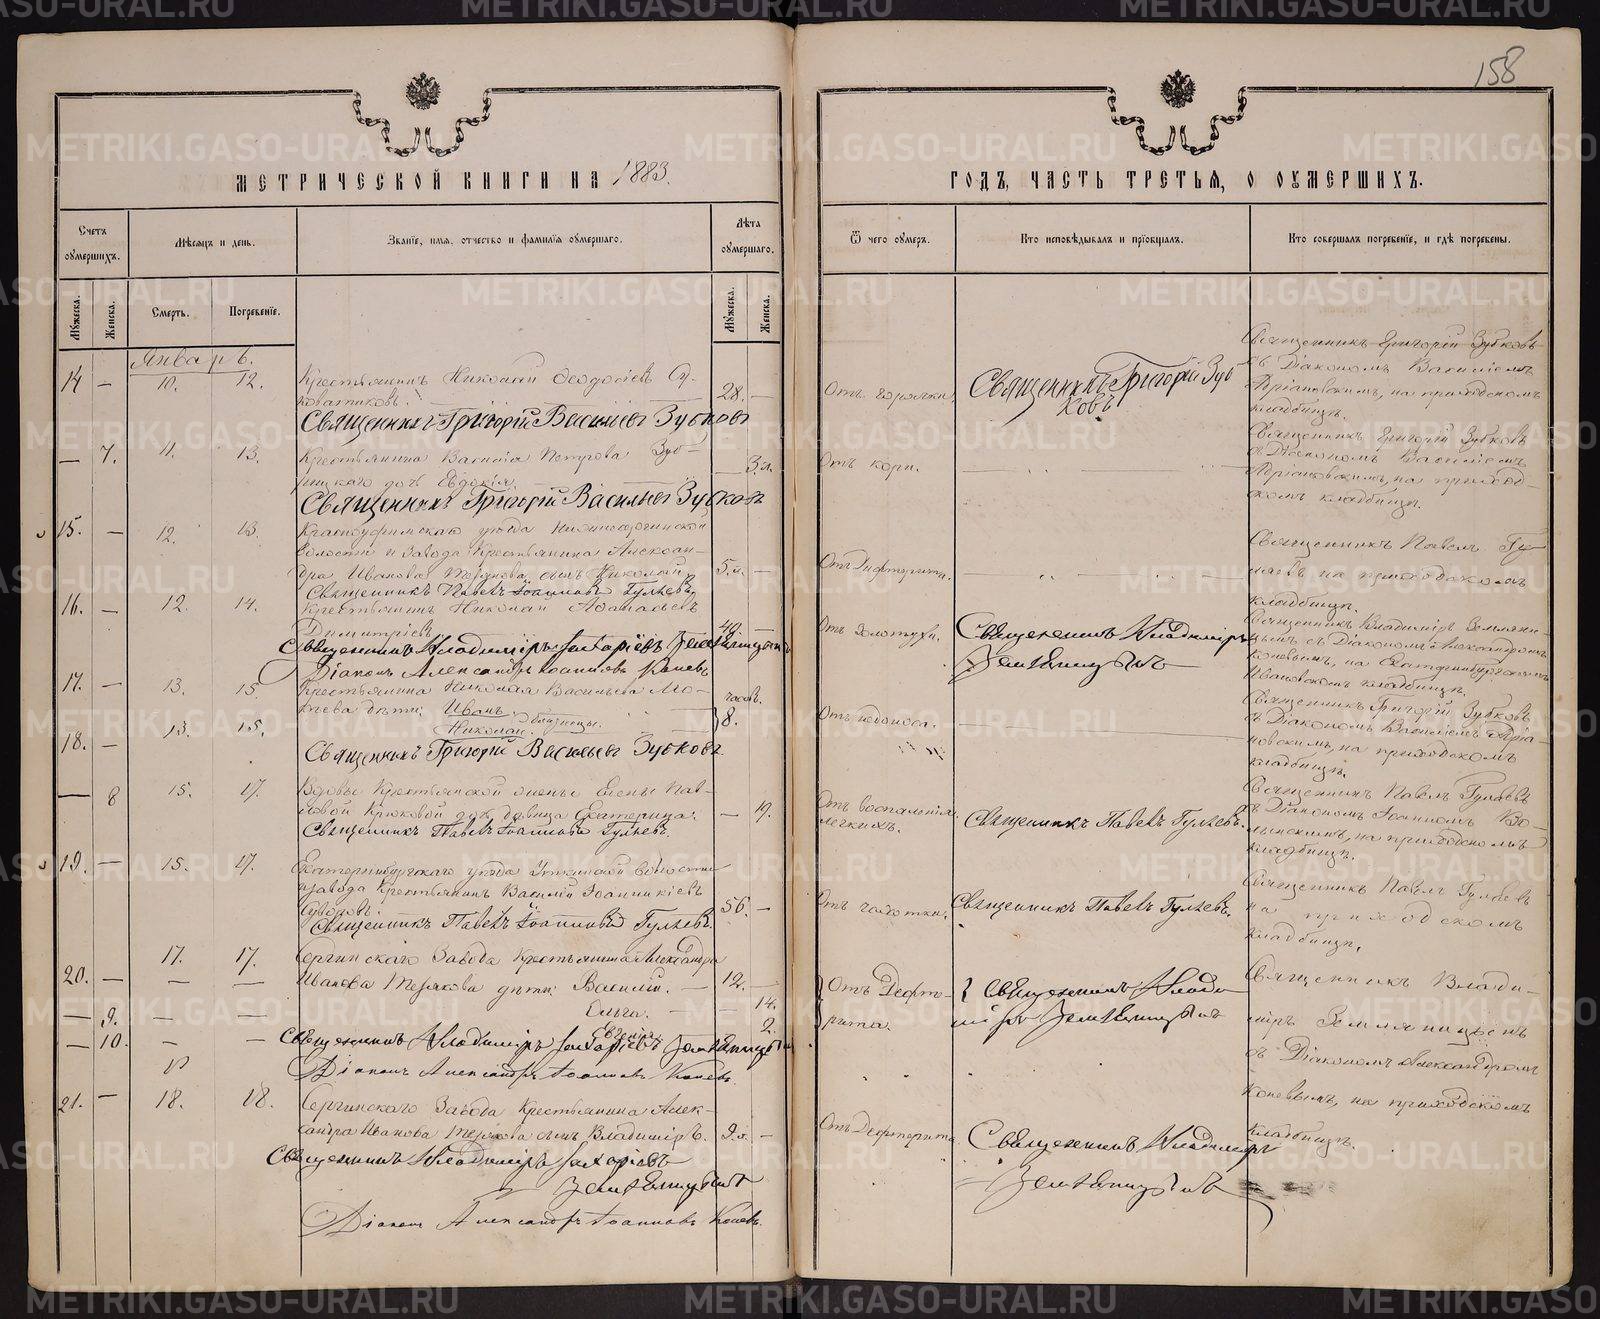 158
МЕТРИЧЕСКОЙ КНИГИ НА 1883.
ГОДЪ, ЧАСТЬ ТРЕТЬЯ, О ОУМЕРШИХЪ.
Счетъ оумершихъ.
Мѣсяцъ и день.
Званіе, имя, отчество и фамилія оумершаго.
Лѣта оумершаго.
Ѿ чего оумеръ.
Кто исповѣдывалъ и пріобщалъ.
Кто совершалъ погребеніе, и гдѣ погребены.
Мужеска.
Женска.
Смерть.
Погребеніе.
Мужеска.
Женска.
Январь.
14 — 10. 12.
Крестьянинъ Николай Феодосіевъ
28. —
Отъ горячки.
Священникъ Григорій Зубковъ
Священникъ Григорій Зубковъ
съ Діакономъ Василіемъ
на приходскомъ
кладбищѣ.
Священникъ Григорій Васильевъ Зубковъ
— 7. 11. 13.
Крестьянина Василія Петрова
дочь Евдокія.
Отъ кори.
Священникъ Григорій Зубковъ
съ Діакономъ Василіемъ
на приход-
скомъ кладбищѣ.
Священникъ Григорій Васильевъ Зубковъ
15. — 12. 13.
Красноуфимскаго уѣзда Нижнесергинской
волости и завода Крестьянина Алексан-
дра Иванова Терякова сынъ Николай.
5. —
Отъ Дифтерита.
Священникъ Павелъ Гу-
ляевъ на приходскомъ
кладбищѣ.
Священникъ Павелъ Іоанновъ Гуляевъ.
16. — 12. 14.
Крестьянинъ Николай
Димитріевъ
40.
Отъ золотухи.
Священникъ Владиміръ
Земляницынъ
Священникъ Владиміръ Земляни-
цынъ съ Діакономъ Александромъ
Коневымъ, на Екатеринбургскомъ
Ивановскомъ кладбищѣ.
Священникъ Владиміръ Захаріевъ Земляницынъ
Діаконъ Александръ Іоанновъ Коневъ
17. — 13. 15.
Крестьянина Николая Васильева Мо-
дѣти: Иванъ
близнецы.
Николай.
часовъ.
8.
18. — 13. 15.
Отъ недоноса.
Священникъ Григорій Зубковъ
съ Діакономъ Василіемъ
на приходскомъ
кладбищѣ.
Священникъ Григорій Васильевъ Зубковъ
— 8 15. 17.
Вдовы Крестьянской жены Елены Пав-
ловой Крюковой дочь дѣвица Екатерина.
— 19.
Отъ воспаленія
легкихъ.
Священникъ Павелъ Гуляевъ.
Священникъ Павелъ Гуляевъ
съ Діакономъ Іоанномъ
на приходскомъ
кладбищѣ.
Священникъ Павелъ Іоанновъ Гуляевъ.
19. — 15. 17.
Екатеринбургскаго уѣзда Уткинской волости
завода Крестьянинъ Василій Іоанникіевъ
56. —
Отъ чахотки.
Священникъ Павелъ Гуляевъ.
Священникъ Павелъ Гуляевъ
на приходскомъ
кладбищѣ.
Священникъ Павелъ Іоанновъ Гуляевъ.
17. 17.
Сергинскаго Завода Крестьянина Александра
20. — — —
Иванова Терякова дѣти: Василій. — 12. —
— 9. — —
Ольга. — — 14.
— 10. — —
Евгенія 2.
Отъ Дефте-
рита.
Священникъ Влади-
міръ Земляницынъ
Священникъ Влади-
міръ Земляницынъ
съ Діакономъ Александромъ
Коневымъ, на приходскомъ
кладбищѣ.
Священникъ Владиміръ Захаріевъ Земляницынъ
Діаконъ Александръ Іоанновъ Коневъ.
21. — 18. 18.
Сергинскаго Завода Крестьянина Алек-
сандра Иванова Терякова сынъ Владиміръ.
9. —
Отъ Дефтерита
Священникъ Владиміръ
Земляницынъ
Священникъ Владиміръ Захаріевъ
Земляницынъ
Діаконъ Александръ Іоанновъ Коневъ.
METRIKI.GASO-URAL.RU